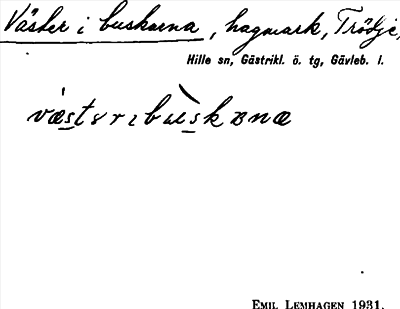 Väster i buskarna, hagmark, Trödje,
Hille sn, Gästrikl. ö. tg, Gävleb. l.
væstɘrɩbuskɐnæ
EMIL LEMHAGEN 1931.